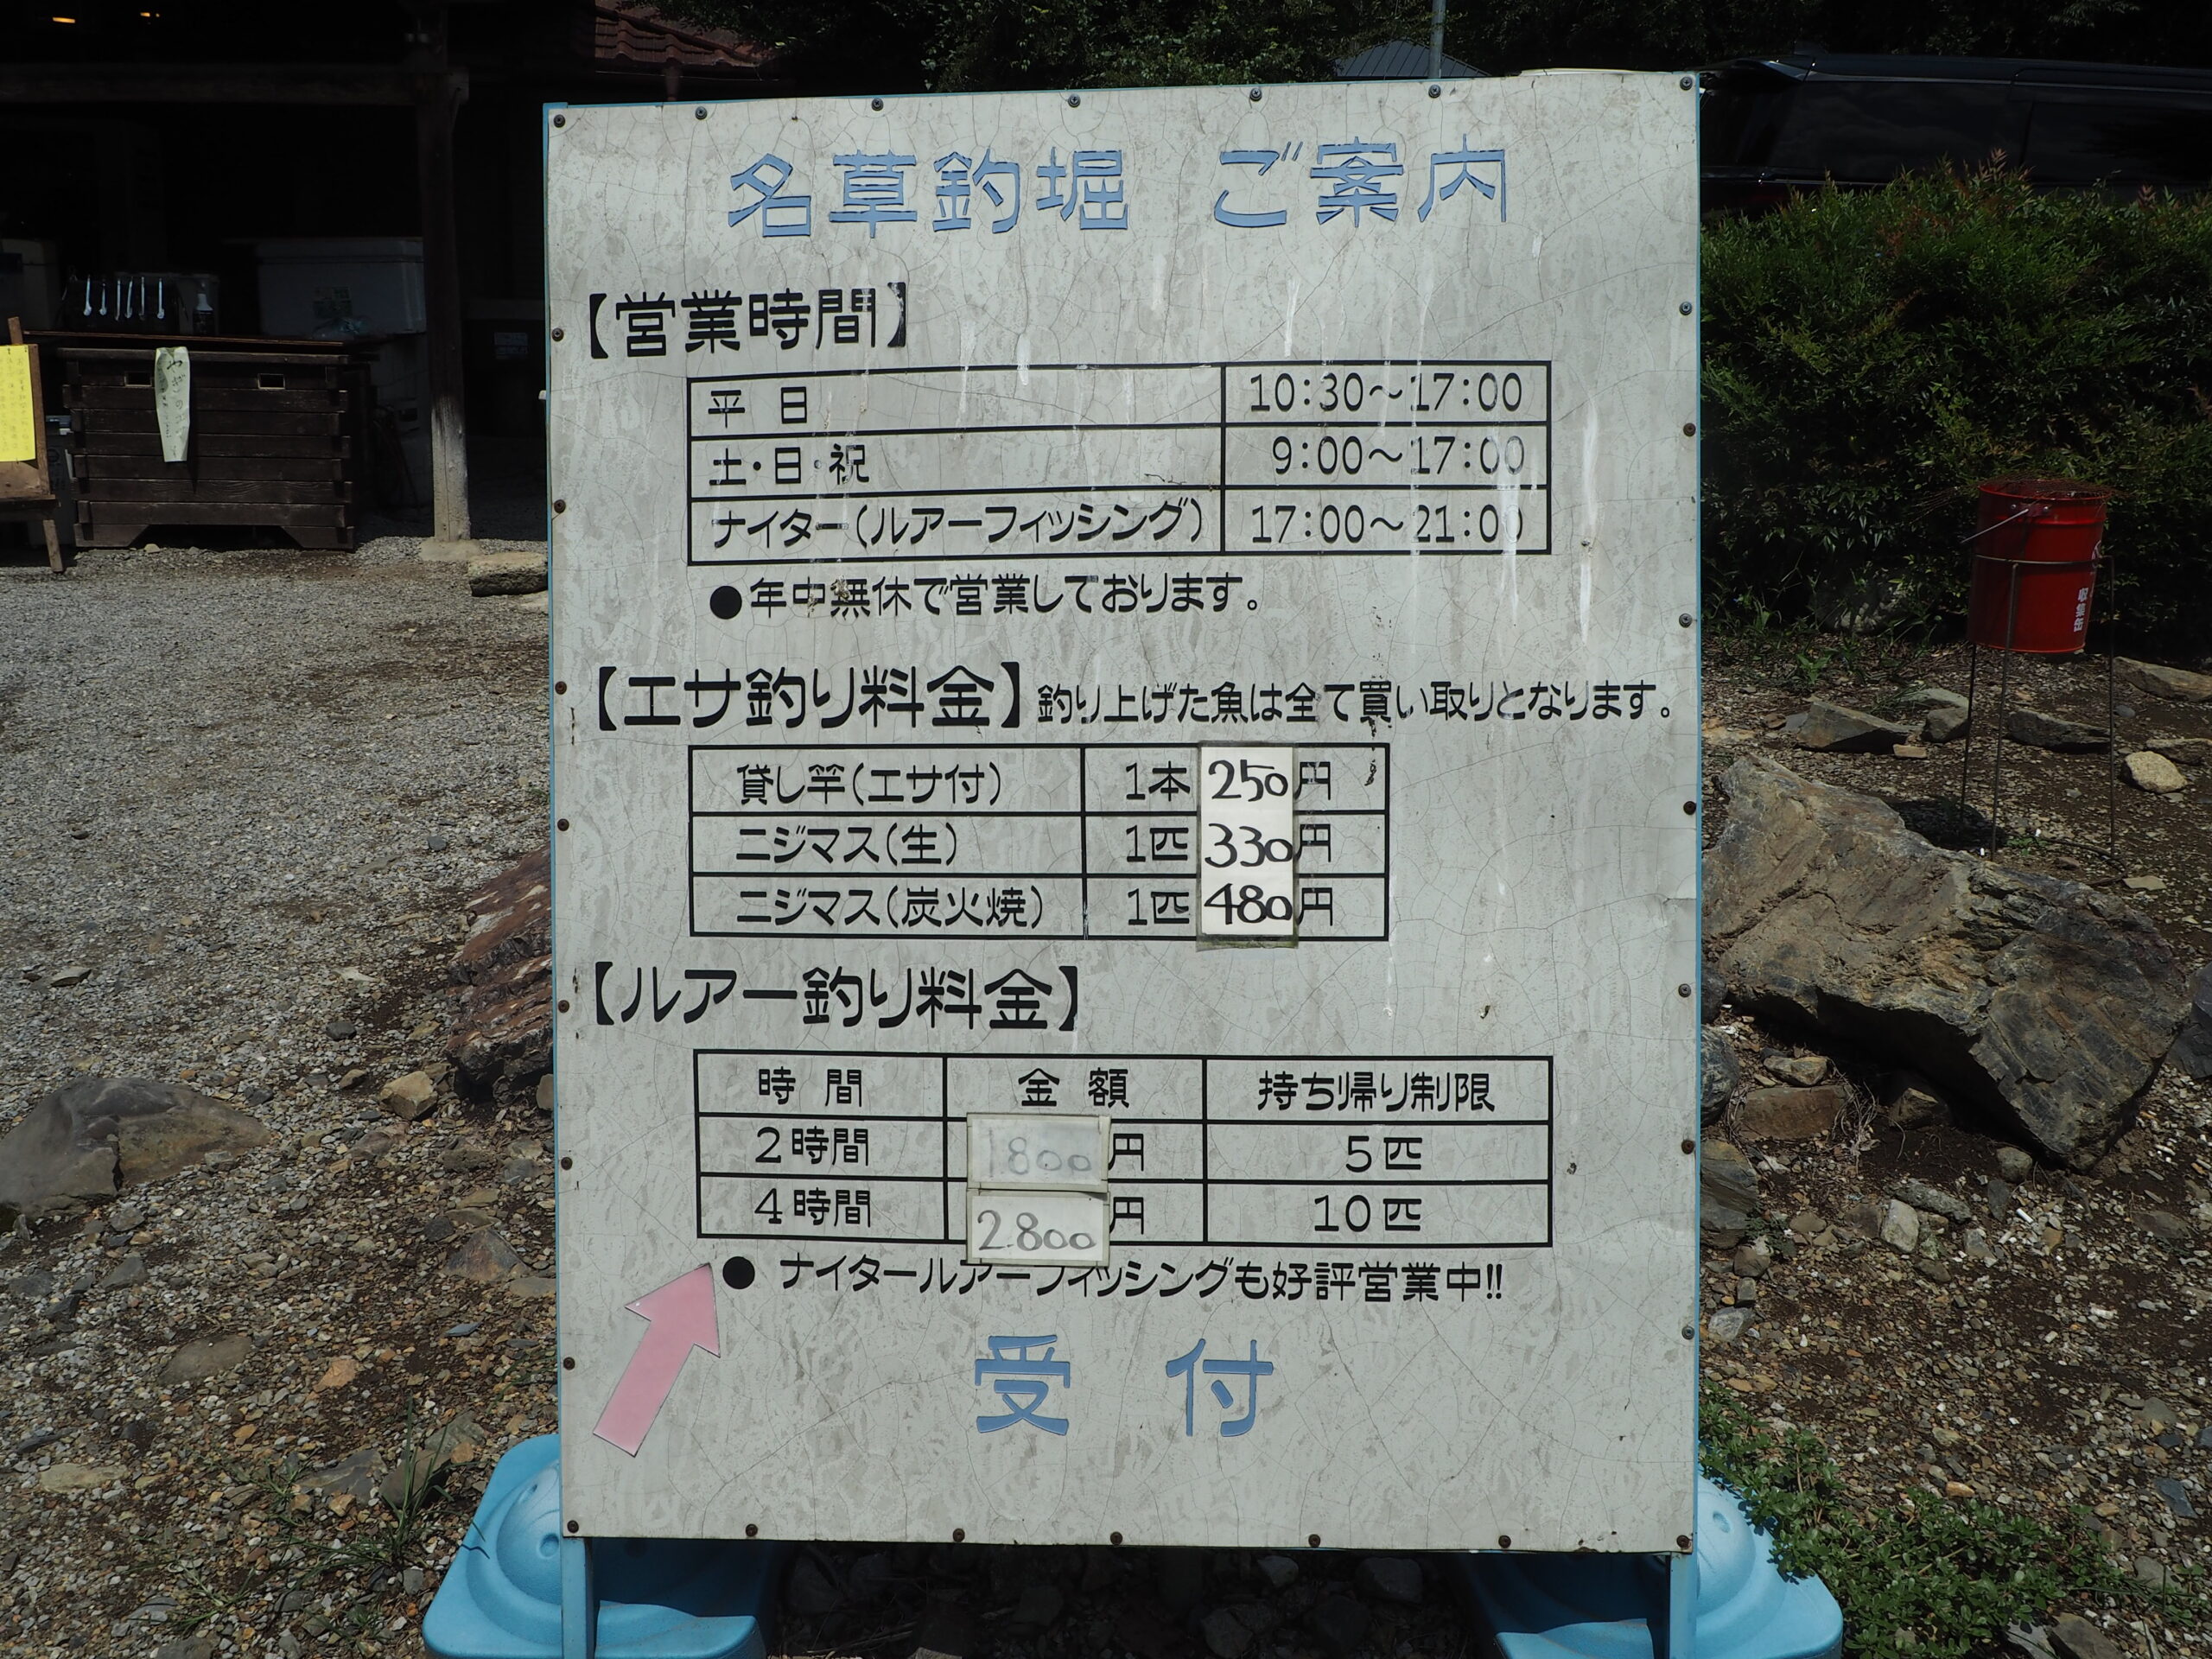 名草釣堀 ご案内
【営業時間】
平 日 10:30～17:00
土・日・祝 9:00～17:00
ナイター(ルアーフィッシング) 17:00～21:00
●年中無休で営業しております。
【エサ釣り料金】釣り上げた魚は全て買い取りとなります。
貸し竿(エサ付) 1本 250円
ニジマス(生) 1匹 330円
ニジマス(炭火焼) 1匹 480円
【ルアー釣り料金】
時 間 金 額 持ち帰り制限
2時間 1800円 5匹
4時間 2.800円 10匹
● ナイタールアーフィッシングも好評営業中!!
受 付
収集缶